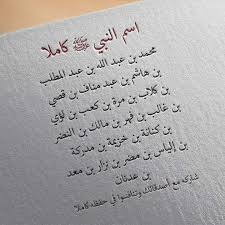 اسم النبي ﷺ كاملا
محمد بن عبد الله بن عبد المطلب
بن هاشم بن عبد مناف بن قصي
بن كلاب بن مرة بن كعب بن لؤي
بن غالب بن فهر بن مالك بن النضر
بن كنانة بن خزيمة بن مدركة
بن إلياس بن مضر بن نزار بن معد
بن عدنان
شاركه مع أصدقائك وتنافسوا في حفظه كاملا